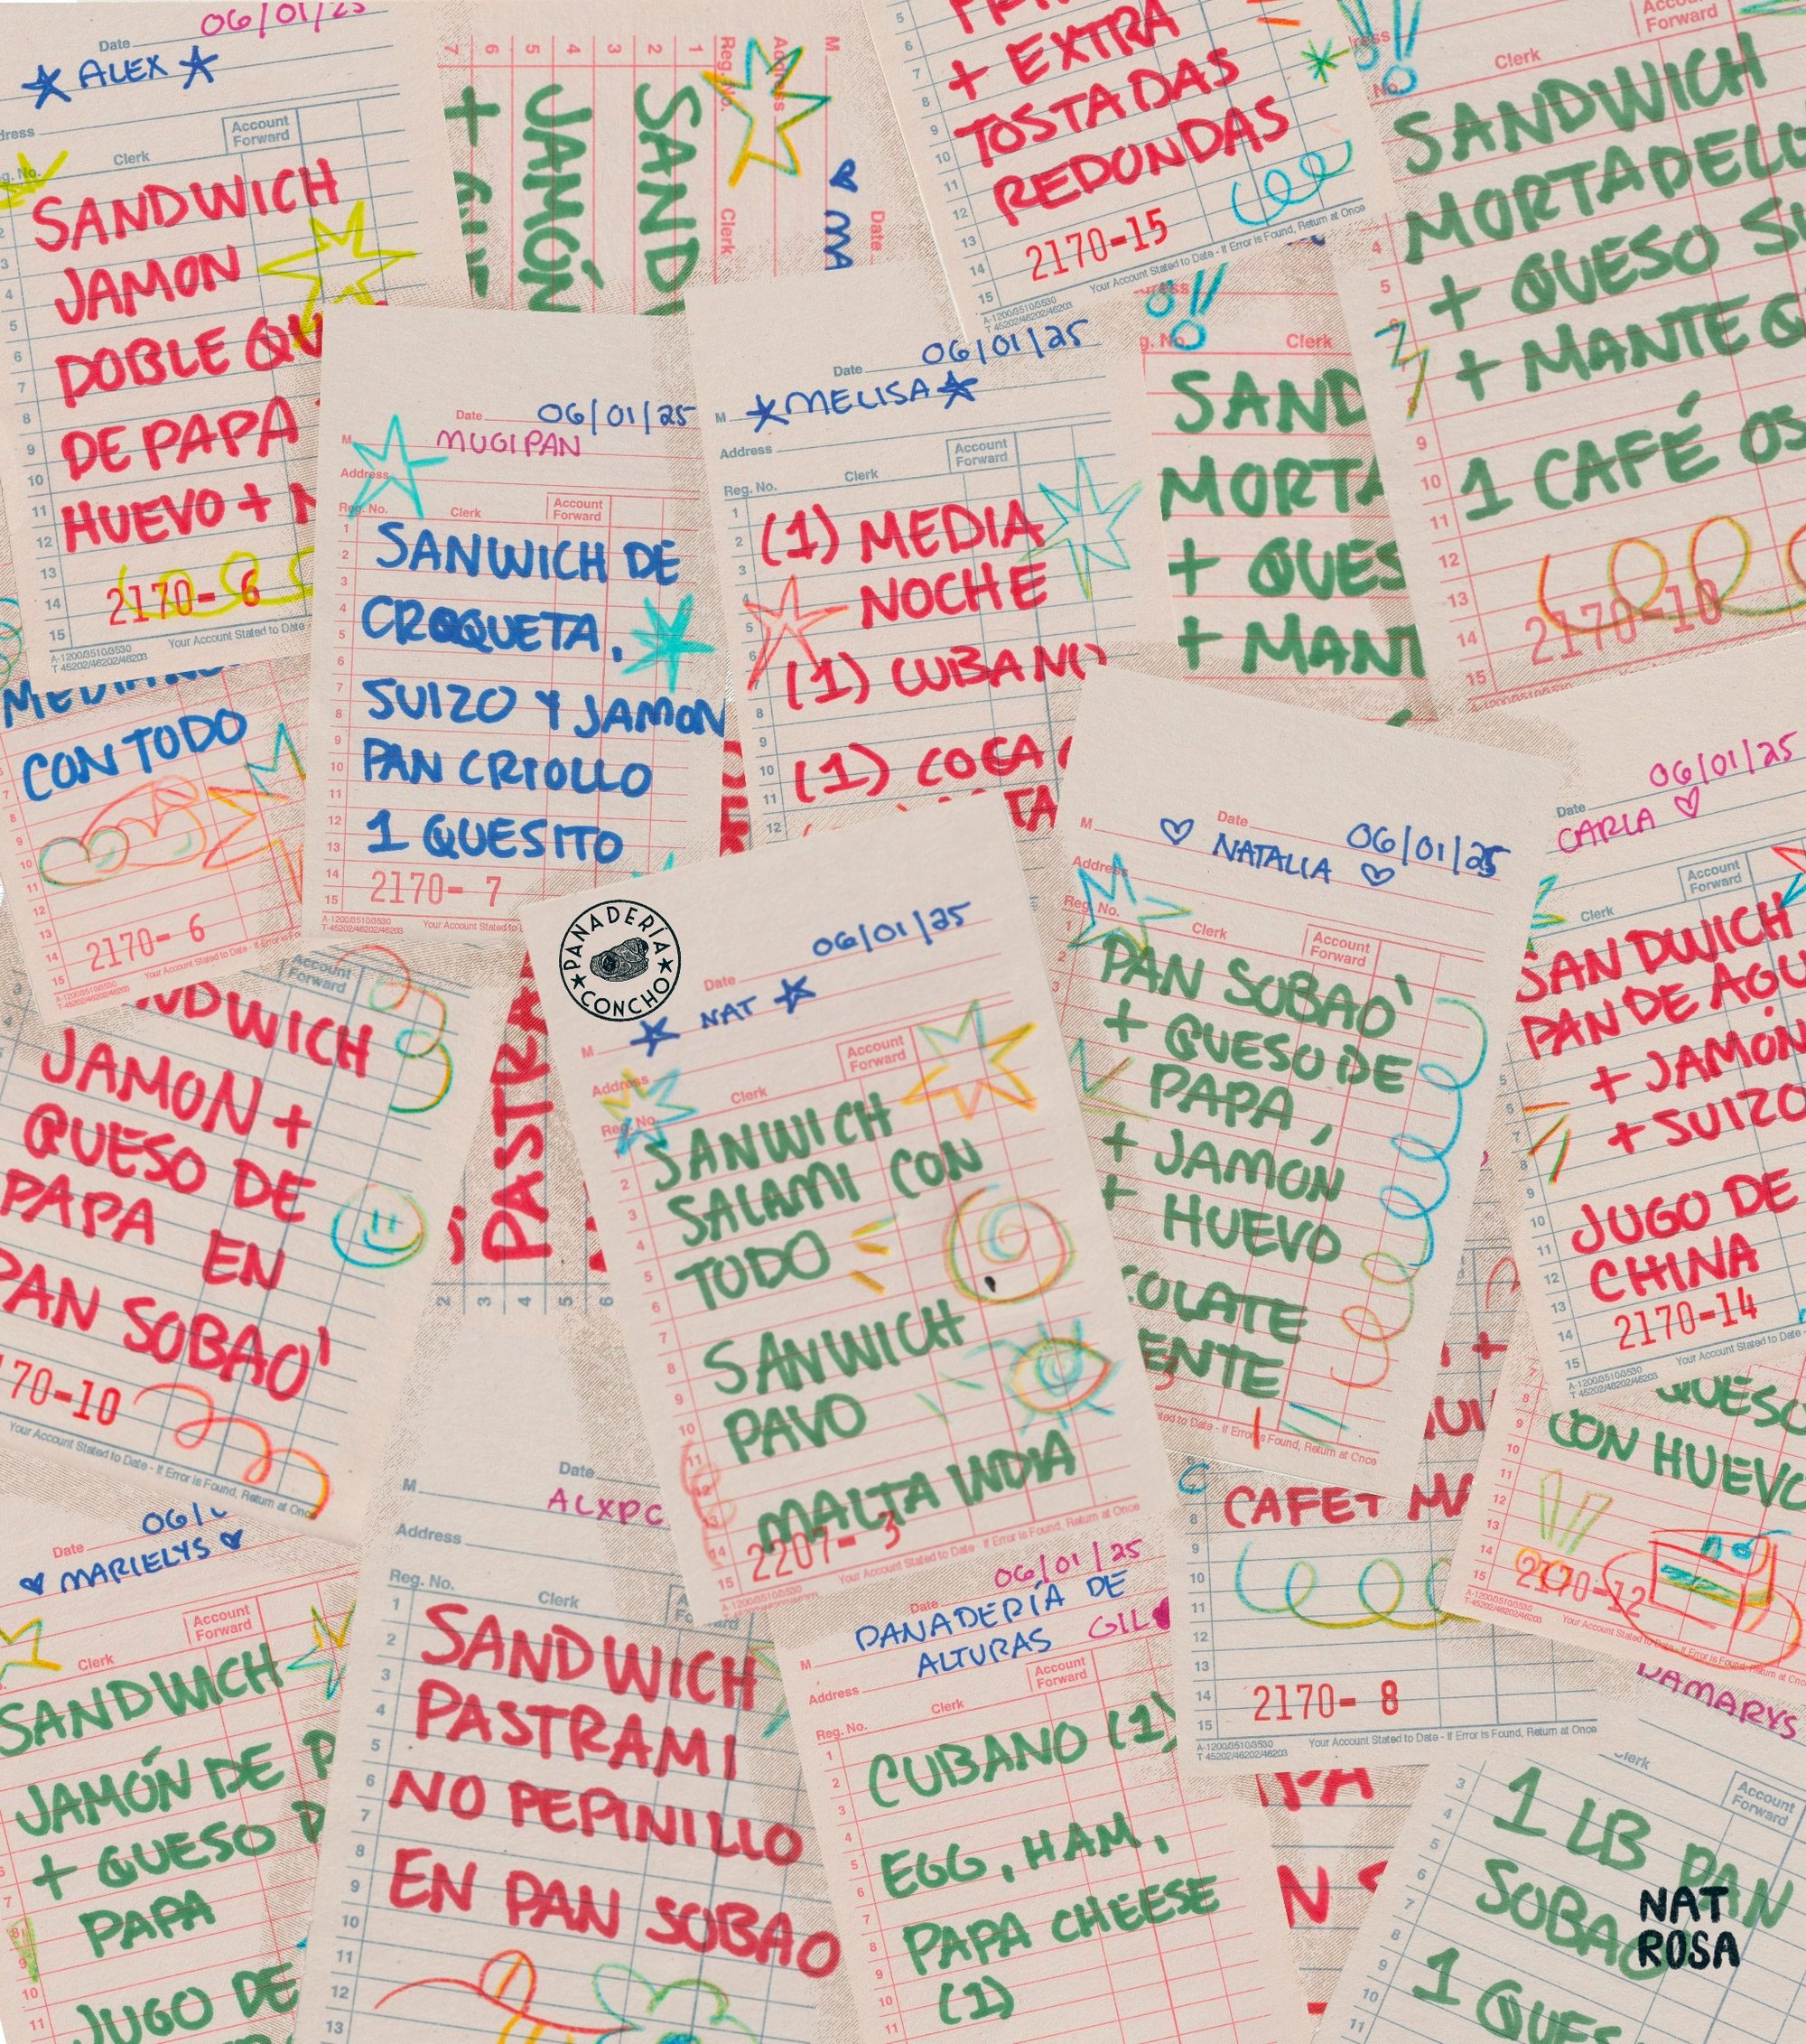 06/01/25
Date
★ ALEX ★
Account
Forward
Clerk
SANDWICH
JAMON
DOBLE
DE PAPA
HUEVO +
2170- 6
Your Account Stated to Date -
A-1200/3510/3530
T 45202/46202/46203
M
Date
Address
Reg. No.
Clerk
JAMÓN
+
+ EXTRA
TOSTADAS
REDONDAS
2170-15
Your Account Stated to Date - If Error is Found, Return at Once
A-1200/3510/3530
T 45202/46202/46203
Clerk
SANDWICH
+ QUESO
+ MANTE
1 CAFÉ
2170-10
Clerk
+
+
CON TODO
2170- 6
Date 06/01/25
M MUGIPAN
Address
Reg. No. Clerk Account
Forward
SANWICH DE
CROQUETA,
SUIZO Y JAMON
PAN CRIOLLO
1 QUESITO
2170- 7
A-1200/3510/3530
T 45202/46202/46203
Your Account Stated to
Date 06/01/25
M ★MELISA★
Address
Reg. No. Clerk Account
Forward
(1) MEDIA
NOCHE
(1) CUBANO
(1) COCA
Account
Forward
JAMON +
QUESO DE
PAPA EN
PAN SOBAO'
70-10
Your Account Stated to Date - If Error is Found, Return at Once
PANADERÍA
CONCHO
Date 06/01/25
M ★ NAT ★
Address
Reg. No. Clerk Account
Forward
SANWICH
SALAMI CON
TODO
SANWICH
PAVO
MALTA INDIA
2207- 3
Your Account Stated to Date If Error is Found, Return at Once
M Date 06/01/25
♡ NATALIA ♡
Address
Reg. No. Clerk Account
Forward
PAN SOBAO'
+ QUESO DE
PAPA,
+ JAMON
+ HUEVO
COLATE
ENTE
to Date - If Error is Found, Return at Once
Date 06/01/25
CARLA ♡
Clerk Account
Forward
SANDWICH
PAN DE AGU
+ JAMÓN
+ SUIZO
JUGO DE
CHINA
2170-14
A-1200/3510/3530
T 45202/46202/46203
Your Account Stated to Date -
QUESO
CON HUEVO
2170-12
Date
♥ MARIELYS ♥
Account
Forward
Clerk
SANDWICH
JAMÓN DE
+ QUESO
PAPA
JUGO DE
M Date
ALXPC
Address
Reg. No. Clerk
SANDWICH
PASTRAMI
NO PEPINILLO
EN PAN SOBAO
Date 06/01/25
M PANADERÍA DE
ALTURAS GIL♥
Address
Reg. No. Clerk Account
Forward
CUBANO (1)
EGG, HAM,
PAPA CHEESE
(1)
2170- 8
A-1200/3510/3530
T 45202/46202/46203
Your Account Stated to Date - If Error is Found, Return at Once
DAMARYS
Clerk Account
Forward
1 LB PAN
SOBAO
1
NAT
ROSA